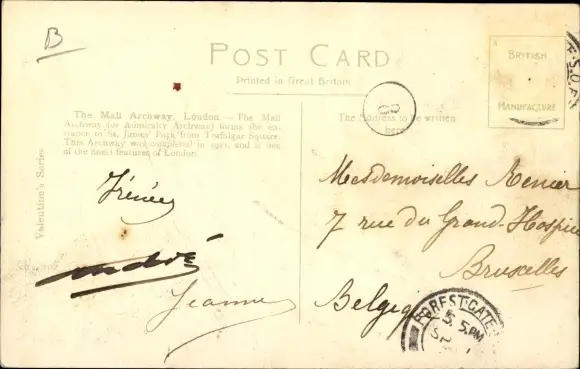 B
POST CARD
Printed in Great Britain
BRITISH
MANUFACTURE
The Mall Archway, London — The Mall
Archway (or Admiralty Archway) forms the en-
trance to St. James' Park from Trafalgar Square.
This Archway was completed in 1911, and is one
of the finest features of London.
The Address to be written
here
Valentine's Series
Irénée
André
Jeanne
Mesdemoiselles Renier
7 rue du Grand-Hospice
Bruxelles
Belgique
FOREST-GATE
5. 5 PM
SP